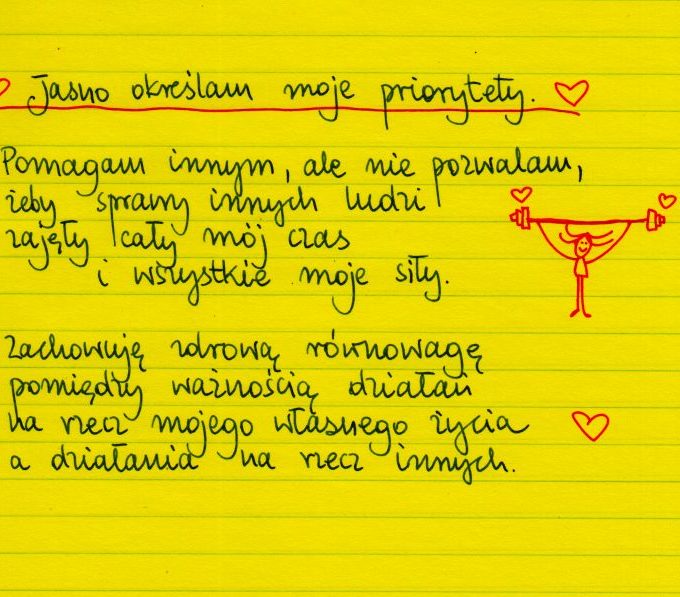 Jasno określam moje priorytety.
Pomagam innym, ale nie pozwalam,
żeby sprawy innych ludzi
zajęły cały mój czas
i wszystkie moje siły.
Zachowuję zdrową równowagę
pomiędzy ważnością działań
na rzecz mojego własnego życia
a działania na rzecz innych.